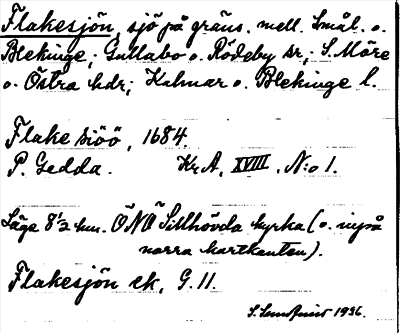 Flakesjön, sjö på gräns. mell. Smål. o.
Blekinge; Gullabo o. Rödeby sr; S. Möre
o. Östra hdr; Kalmar o. Blekinge l.
Flake siöö, 1684.
P. Gedda. Kr A, XVIII, N:o 1.
Läge 8 1/2 km. ÖNÖ Sillhövda kyrka (o. inpå
norra kartkanten).
Flakesjön ek, G. 11.
S. 1936.